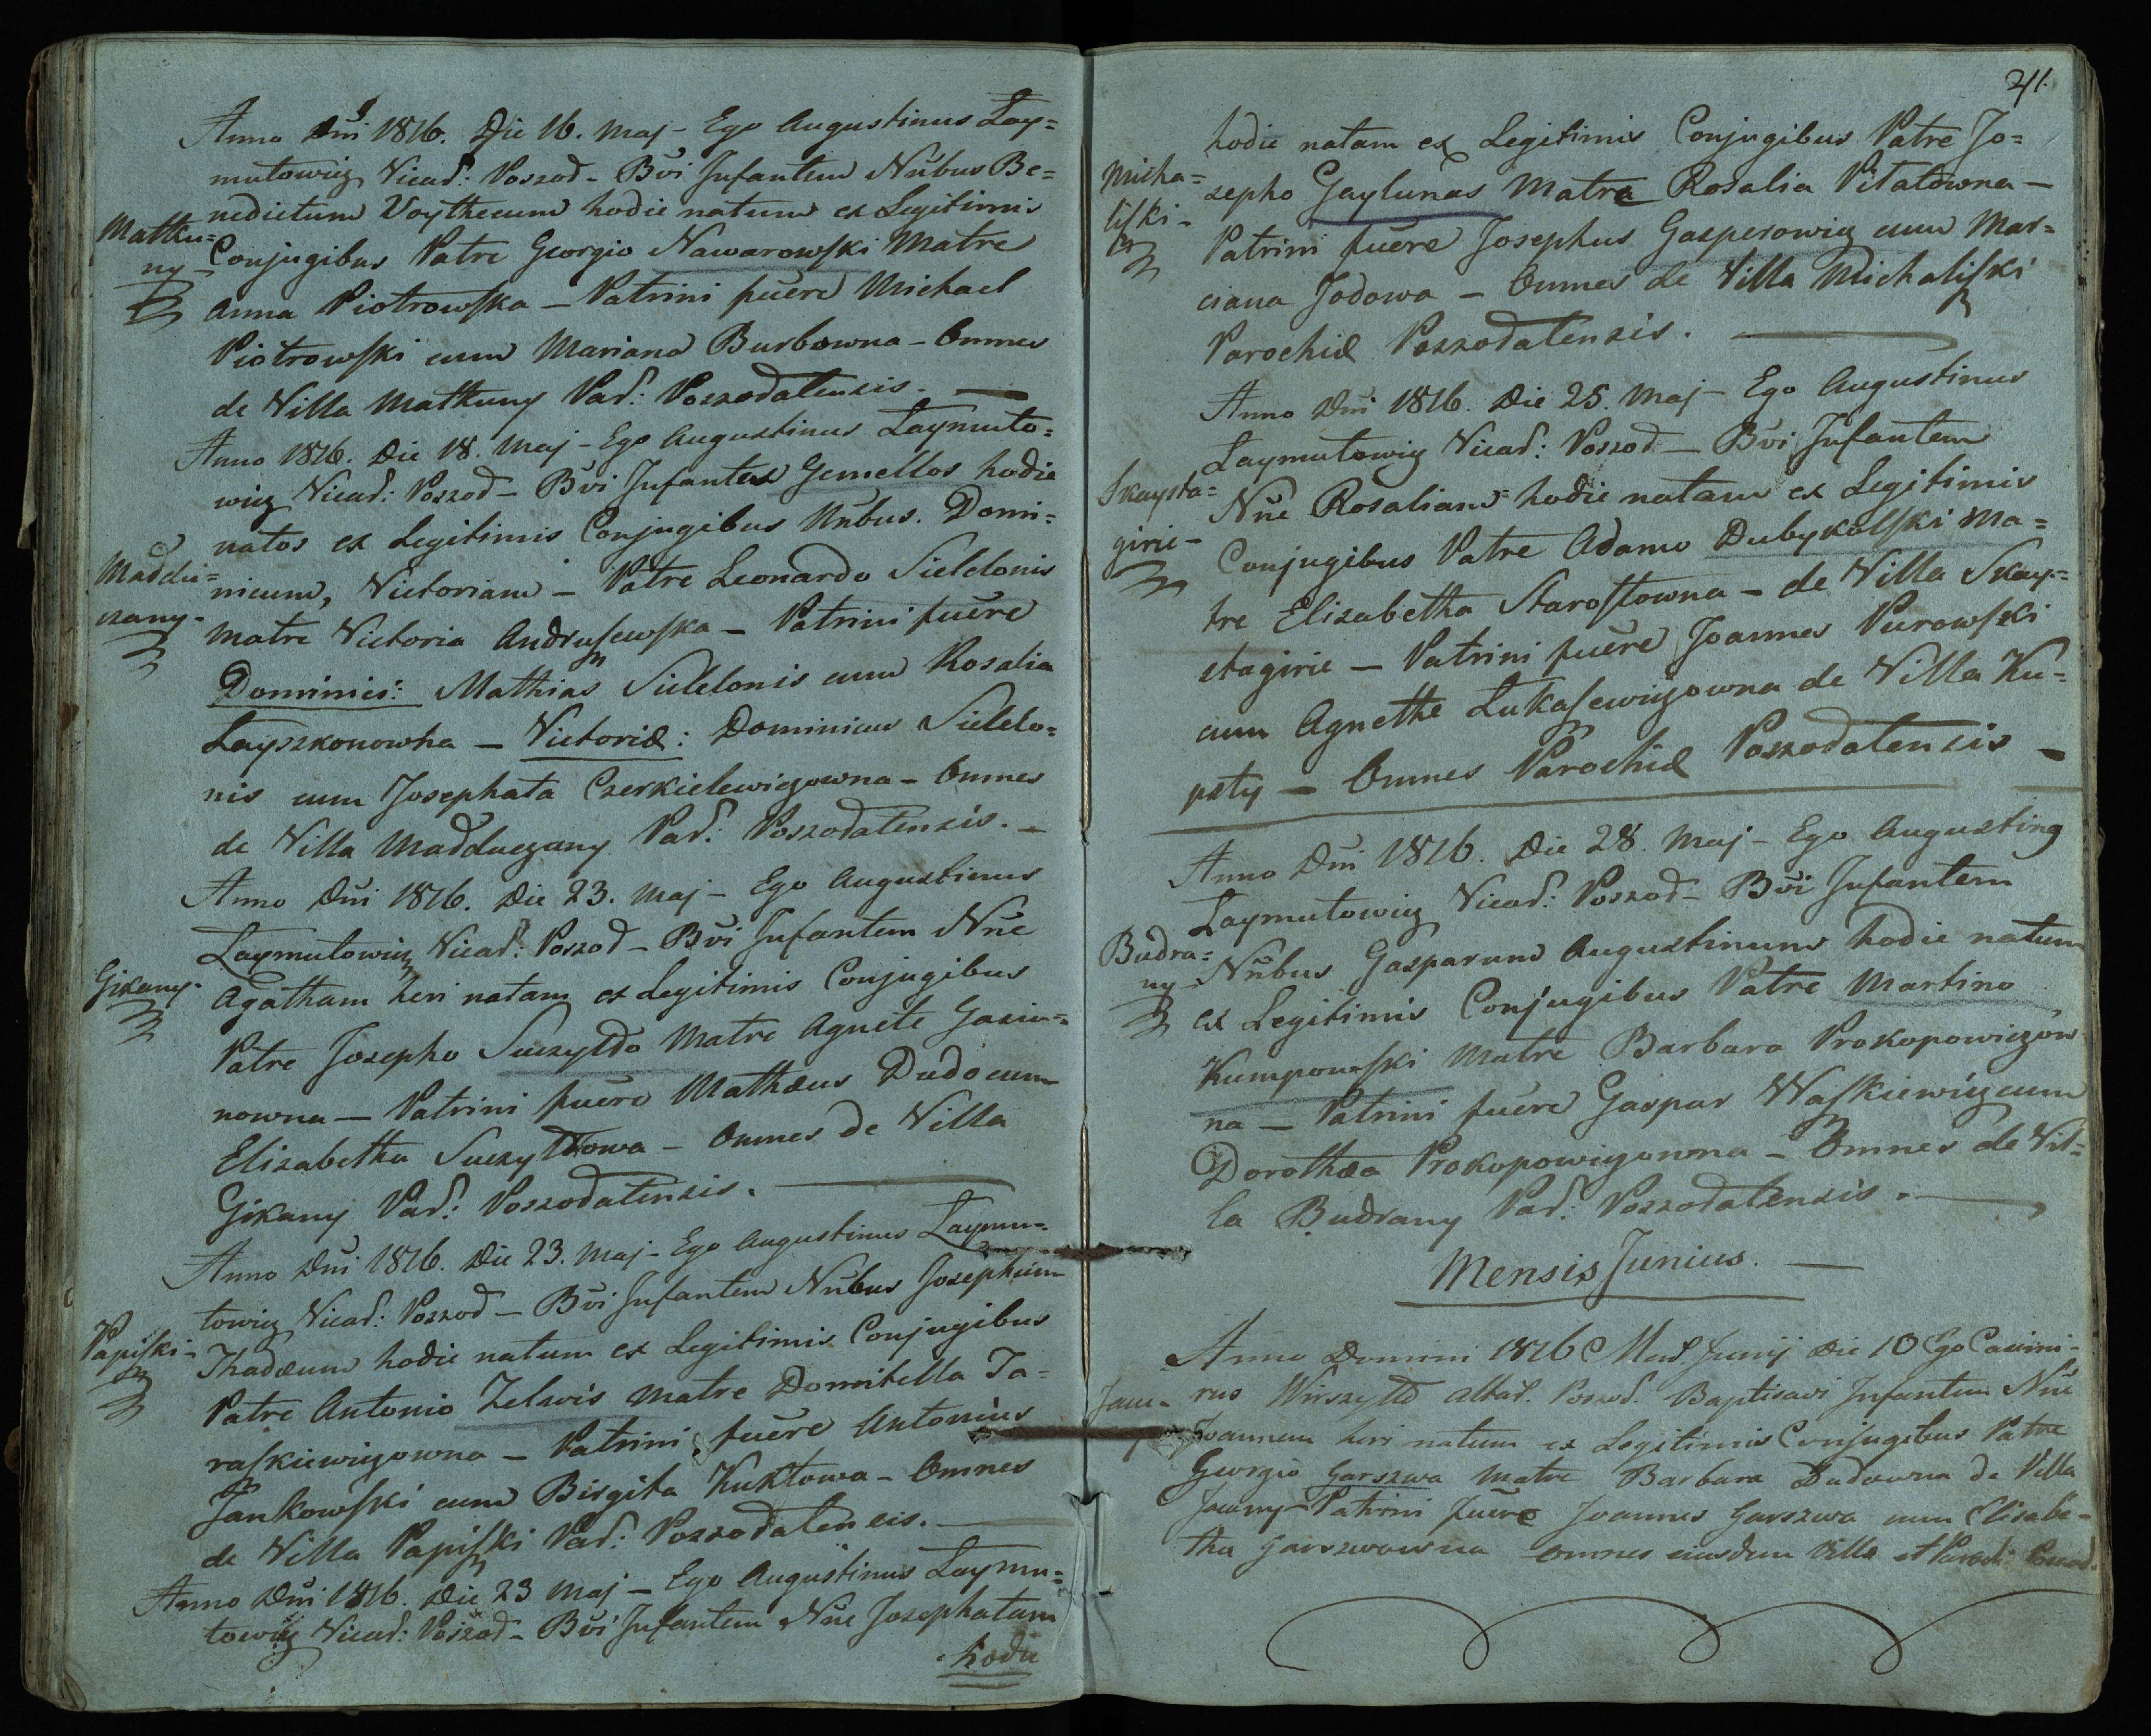 Anno Dni 1816. Die 16. Maj - Ego Augustinus Lay=
mutowicz Vicar: Poszod - Bvi Infantem Nübus Be=
nedictum Voythecum hodie natum ex Legitimis
Matku=
ny -
Conjugibus Patre Georgio Nawarowski Matre
Anna Piotrowska - Patrini fuere Michael
Piotrowski cum Mariana Burbowna - Omnes
de Villa Matkuny Par: Poszodatensis.
Anno 1816. Die 18. Maj - Ego Augustinus Laymuto=
wicz Vicar: Poszod - Bvi Infantes Gemellos hodie
natos ex Legitimis Conjugibus Nübus. Domi=
Maddu=
czany -
nicum, Victoriam - Patre Leonardo Sielelonis
Matre Victoria Andruszewska - Patrini fuere
Dominici: Mathias Sielelonis cum Rosalia
Layszkonowna - Victoriæ: Dominicus Sielelo=
nis cum Josephata Czerkielewiczowna - Omnes
de Villa Madduczany Par: Poszodatensis. -
Anno Dni 1816. Die 23. Maj - Ego Augustinus
Laymutowicz Vicar: Poszod - Bvi Infantem Nüe
Gikany -
Agatham heri natam ex Legitimis Conjugibus
Patre Josepho Suczyłdo Matre Agnete Gasiu=
nowna - Patrini fuere Mathæus Dudo cum
Elizabetha Suczyłdowa - Omnes de Villa
Gikany Par: Poszodatensis.
Anno Dni 1816. Die 23. Maj - Ego Augustinus Laymu=
towicz Vicar: Poszod - Bvi Infantem Nübus Josephum
Papiszki -
Thadæum hodie natum ex Legitimis Conjugibus
Patre Antonio Zelwis Matre Domitella Ta=
raszkiewiczowna - Patrini fuere Antonius
Jankowski cum Birgita Kuktowa - Omnes
de Villa Papiszki Par: Poszodatensis.
Anno Dni 1816. Die 23 Maj - Ego Augustinus Laymu=
towicz Vicar: Poszod - Bvi Infantem Nüe Josephatam
hodie
241.
hodie natam ex Legitimis Conjugibus Patre Jo=
Micha=
liszki -
sepho Gaylunas Matre Rosalia Pitatowna -
Patrini fuere Josephus Gasperowicz cum Mar=
ciana Jodowa - Omnes de Villa Michaliszki
Parochiæ Poszodatensis.
Anno Dni 1816. Die 25. Maj - Ego Augustinus
Laymutowicz Vicar: Poszod - Bvi Infantem
Skaysta=
girie -
Nüe Rosaliam hodie natam ex Legitimis
Conjugibus Patre Adamo Dubykolski Ma=
tre Elizabetha Starostowna - de Villa Skay=
stagirie - Patrini fuere Joannes Purowski
cum Agnethe Lukaszewiczowna de Villa Ku=
psty - Omnes Parochiæ Poszodatensis -
Anno Dni 1816. Die 28. Maj - Ego Augusting
Laymutowicz Vicar: Poszod - Bvi Infantem
Budra=
ny -
Nübus Gasparum Augustinum hodie natum
ex Legitimis Conjugibus Patre Martino
Kumpowski Matre Barbara Prokopowiczow
na - Patrini fuere Gaspar Waszkiewicz cum
Dorothæa Prokopowiczowna - Omnes de Vil=
la Budrany Par: Poszodatensis.
Mensis Junius.
Anno Domini 1816 Mens. Junij Die 10 Ego Casimi-
Jaw-
rus Wirszyłło Altar. Poszod. Baptisavi Infantem Nüe
Joannem heri natum ex Legitimis Conjugibus Patre
Georgio Garszwa Matre Barbara Dudowna de Villa
Jawny - Patrini fuere Joannes Garszwa cum Elisabe-
tha Garszwowna omnes eiusdem Villæ et Paroch: Poszod.